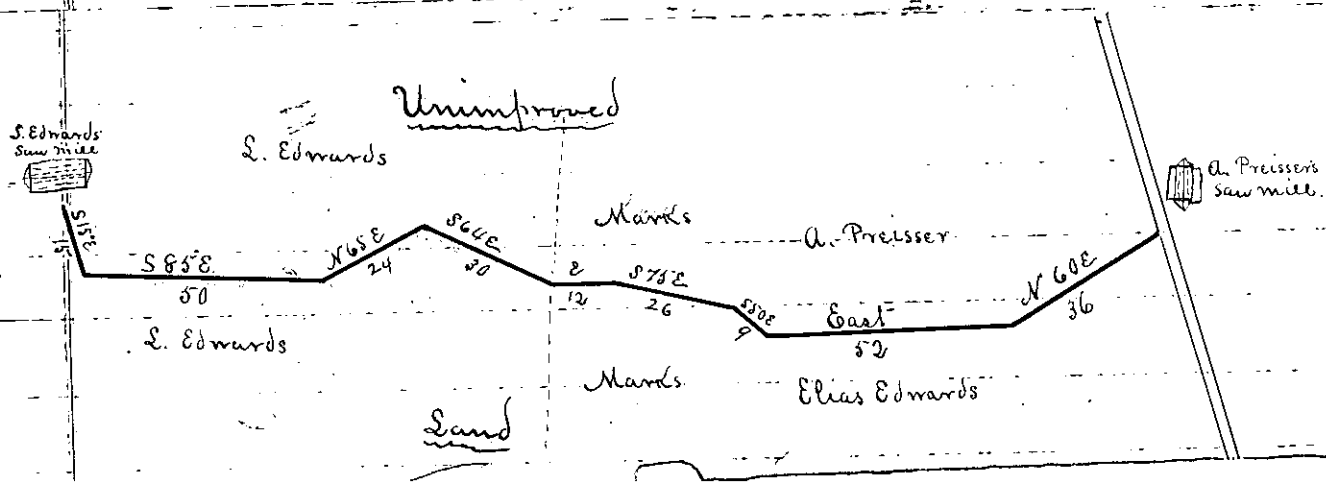 Unimproved
S. Edwards
Saw mill
L. Edwards
A. Preisser's
Saw mill.
Marks
A. Preisser
S15°E
15
S 85°E
50
N 65 E
24
S 64 E
30
E
12
S 75 E
26
S 50 E
9
East
52
N 60 E
36
L. Edwards
Marks
Elias Edwards
Land